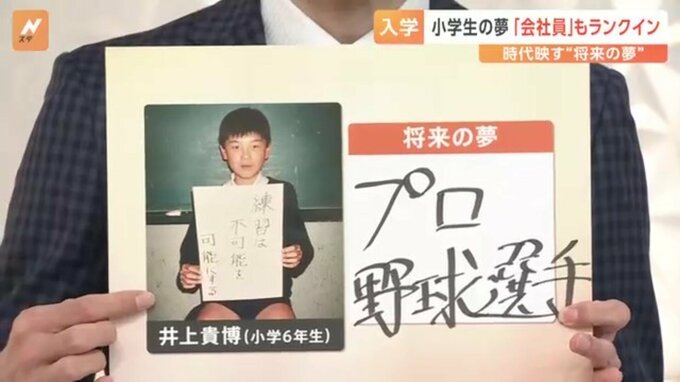 Nスタ
入学 小学生の夢「会社員」もランクイン
時代映す“将来の夢”
練習は
不可能を
可能にする
井上貴博(小学6年生)
将来の夢
プロ
野球選手